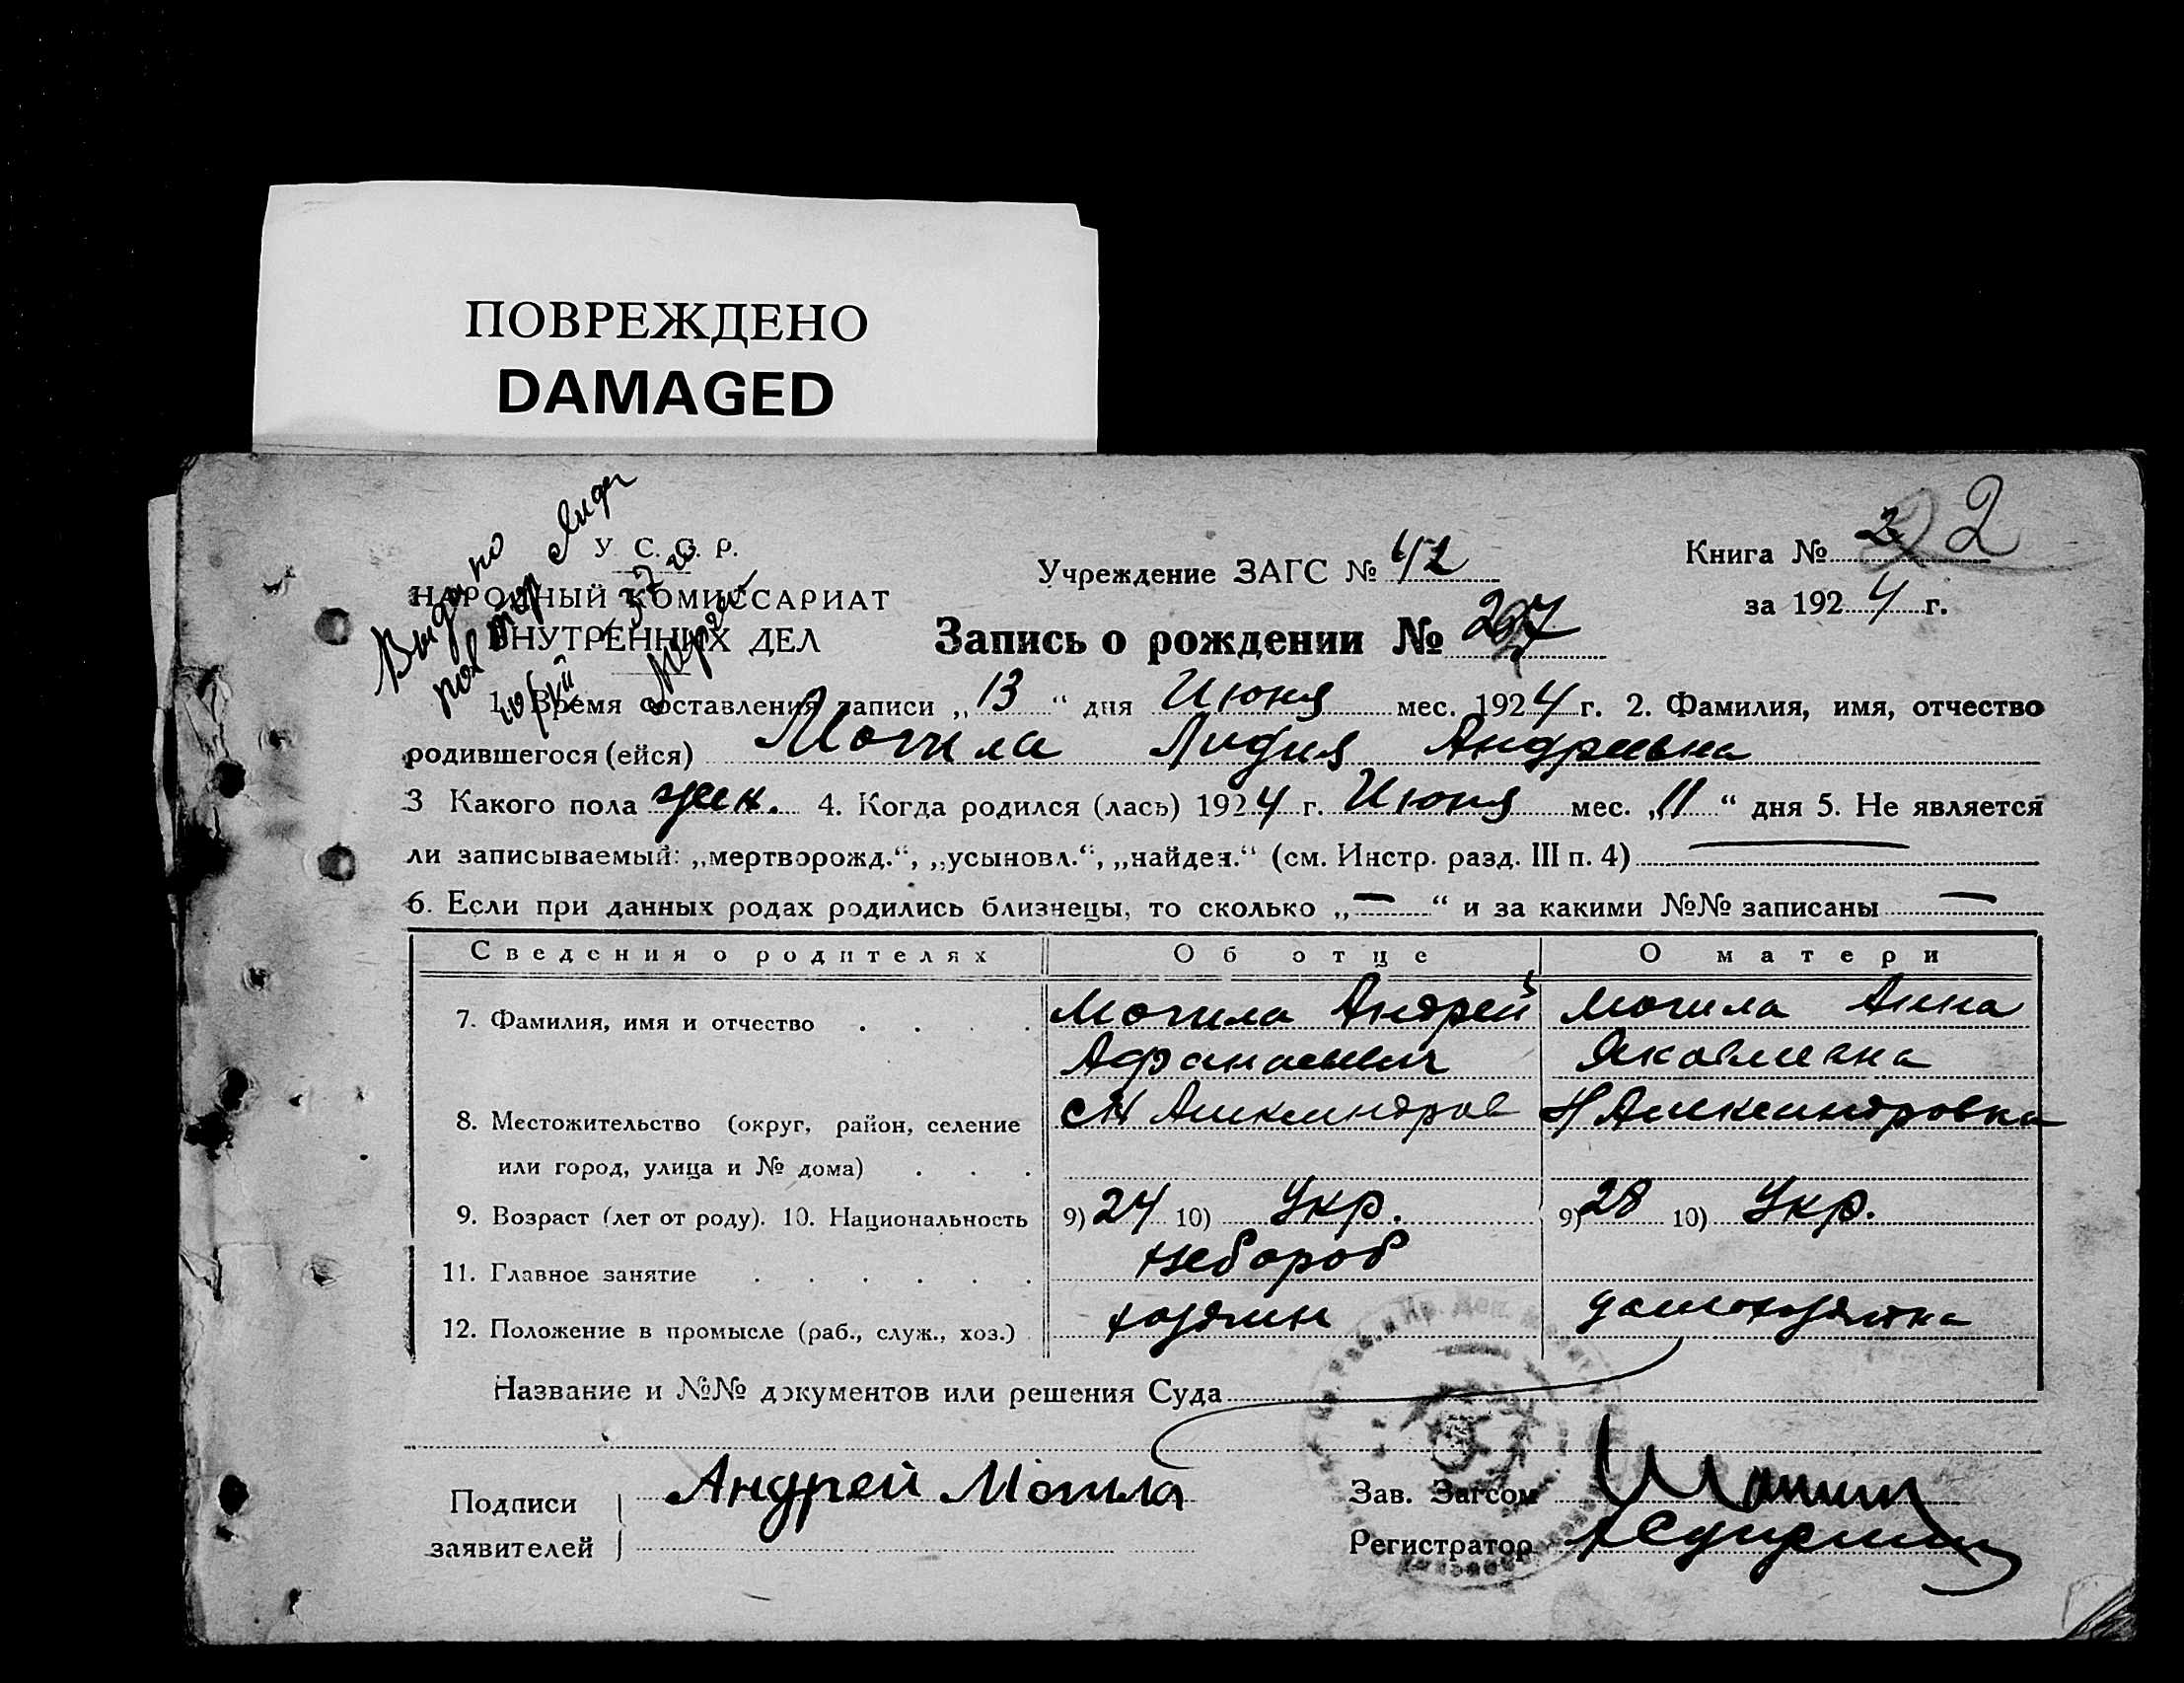 ПОВРЕЖДЕНО
DAMAGED
Выдано
У. С. С. Р.
НАРОДНЫЙ КОМИССАРИАТ
ВНУТРЕННИХ ДЕЛ
Учреждение ЗАГС № 42
Книга № 2 2
за 1924 г.
Запись о рождении № 27
1. Время составления записи „13“ дня Июня мес. 1924 г. 2. Фамилия, имя, отчество
родившегося (ейся) Могила Лидия Андреевна
3 Какого пола жен. 4. Когда родился (лась) 1924 г. Июня мес. „11“ дня 5. Не является
ли записываемый: „мертворожд.“, „усыновл.“, „найден.“ (см. Инстр. разд. III п. 4) —
6. Если при данных родах родились близнецы, то сколько „—“ и за какими №№ записаны —
Сведения о родителях Об отце О матери
7. Фамилия, имя и отчество . . . . Могила Андрей Могила Анна
Афанасьевич Яковлевна
8. Местожительство (округ, район, селение Н Александровка
или город, улица и № дома) . . .
9. Возраст (лет от роду). 10. Национальность 9) 24 10) Укр. 9) 28 10) Укр.
11. Главное занятие . . . . . . хлебороб
12. Положение в промысле (раб., служ., хоз.) хозяин домохозяйка
Название и №№ документов или решения Суда
Подписи Андрей Могила Зав. Загсом
заявителей Регистратор